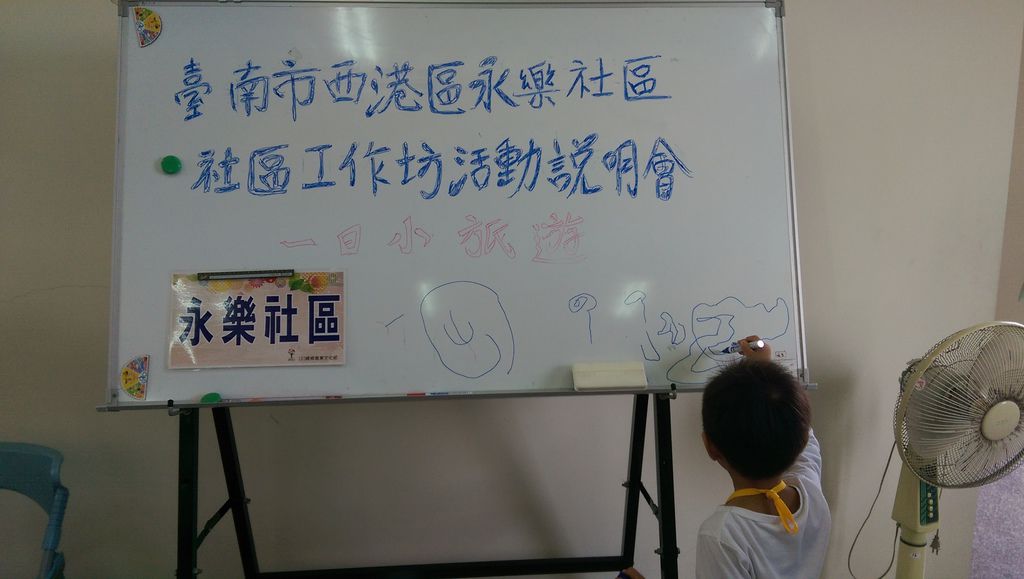 臺南市西港區永樂社區
社區工作坊活動説明會
一日小旅遊
永樂社區